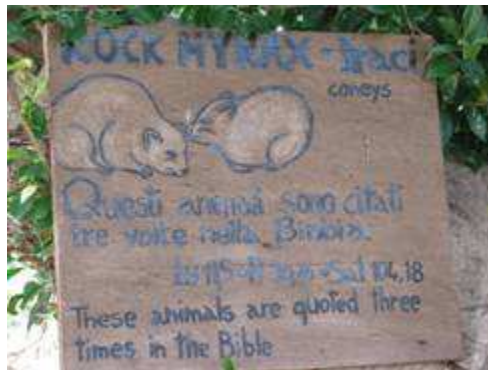 ROCK HYRAX - Iraci
coneys
Questi animali sono citati
tre volte nella Bibbia.
Sal 104,18
These animals are quoted three
times in the Bible